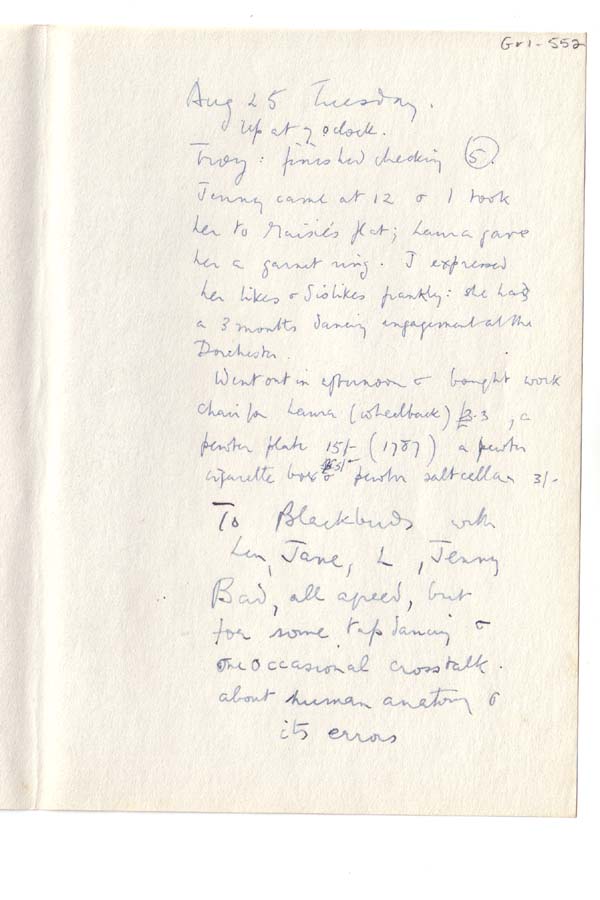 Gr1-552
Aug 25 Tuesday.
Up at 7 oclock.
Troy: finished checking (5).
Jenny came at 12 & I took
her to Maisie's flat; Laura gave
her a garnet ring. I expressed
her likes & dislikes frankly: she has
a 3 months dancing engagement at the
Dorchester.
Went out in afternoon & bought work
chair for Laura (wheelback) 3.3, a
pewter plate 15/- (1787) a pewter
cigarette box & pewter salt cellar 3/-
To Blackbirds with
Len, Jane, L, Jenny
Bad, all agreed, but
for some tap dancing &
one occasional crosstalk.
about human anatomy &
its errors